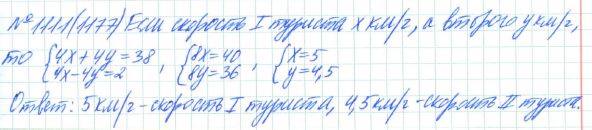 №1111(1177) Если скорость I туриста x км/г, а второго y км/г,
то {4x+4y=38, {8x=40, {x=5
{4x-4y=2 {8y=36 {y=4,5
Ответ: 5 км/г - скорость I туриста, 4,5 км/г - скорость II туриста.